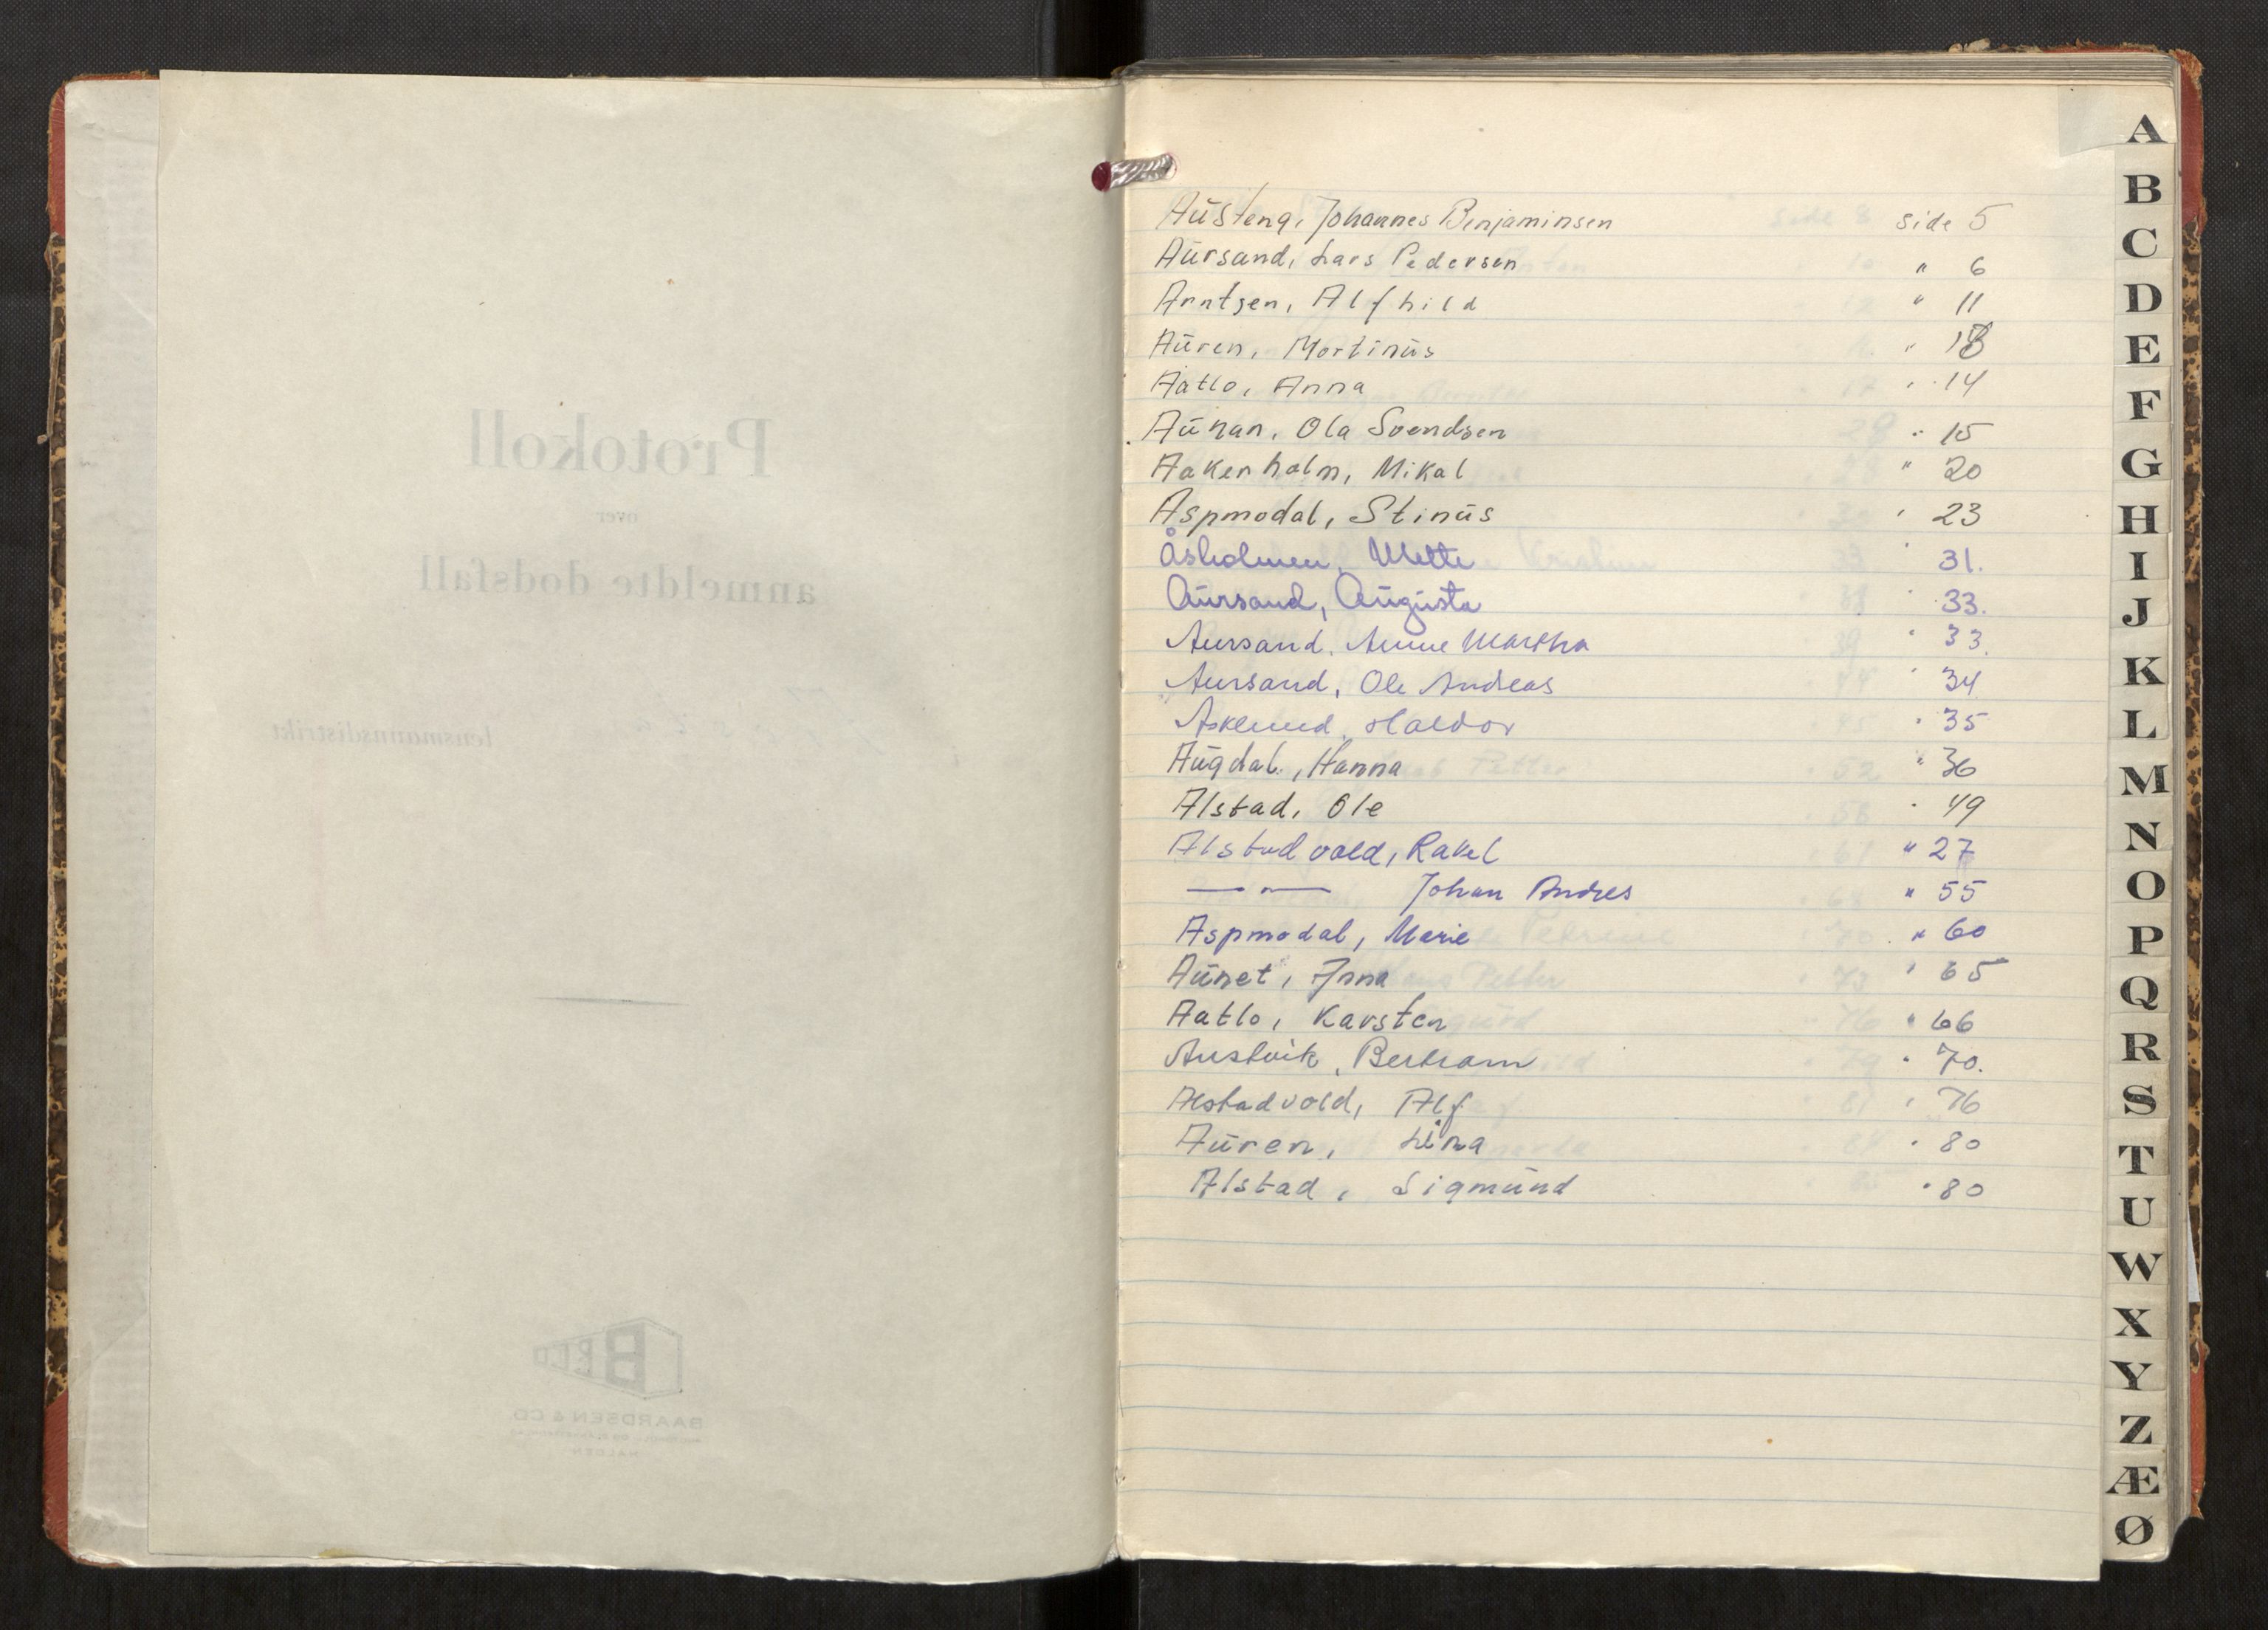 Protokoll
over
anmeldte dødsfall
lensmannsdistrikt
BAARDSEN & CO
HALDEN
Austeng, Johannes Benjaminsen side 5
Aursand, Lars Pedersen " 6
Arntsen, Alfhild " 11
Auren, Martinus " 13
Aatlo, Anna " 14
Aunan, Ola Svendsen " 15
Aakerholm, Mikal " 20
Aspmodal, Stinus " 23
Åsholmen, Mette " 31.
Aursand, Augusta " 33.
Aursand, Anne Martha " 33.
Aursand, Ole Andreas " 34
Asklund, Haldor " 35
Augdal, Hanna " 36
Alstad, Ole " 49
Alstadvold, Rakel " 27
—"— Johan Andres " 55
Aspmodal, Marie " 60
Aunet, Inna " 65
Aatlo, Karsten " 66
Austvik, Bertram " 70.
Alstadvold, Alf " 76
Auren, Lina " 80
Alstad, Sigmund " 80
A
B
C
D
E
F
G
H
I
J
K
L
M
N
O
P
Q
R
S
T
U
W
X
Y
Z
Æ
Ø